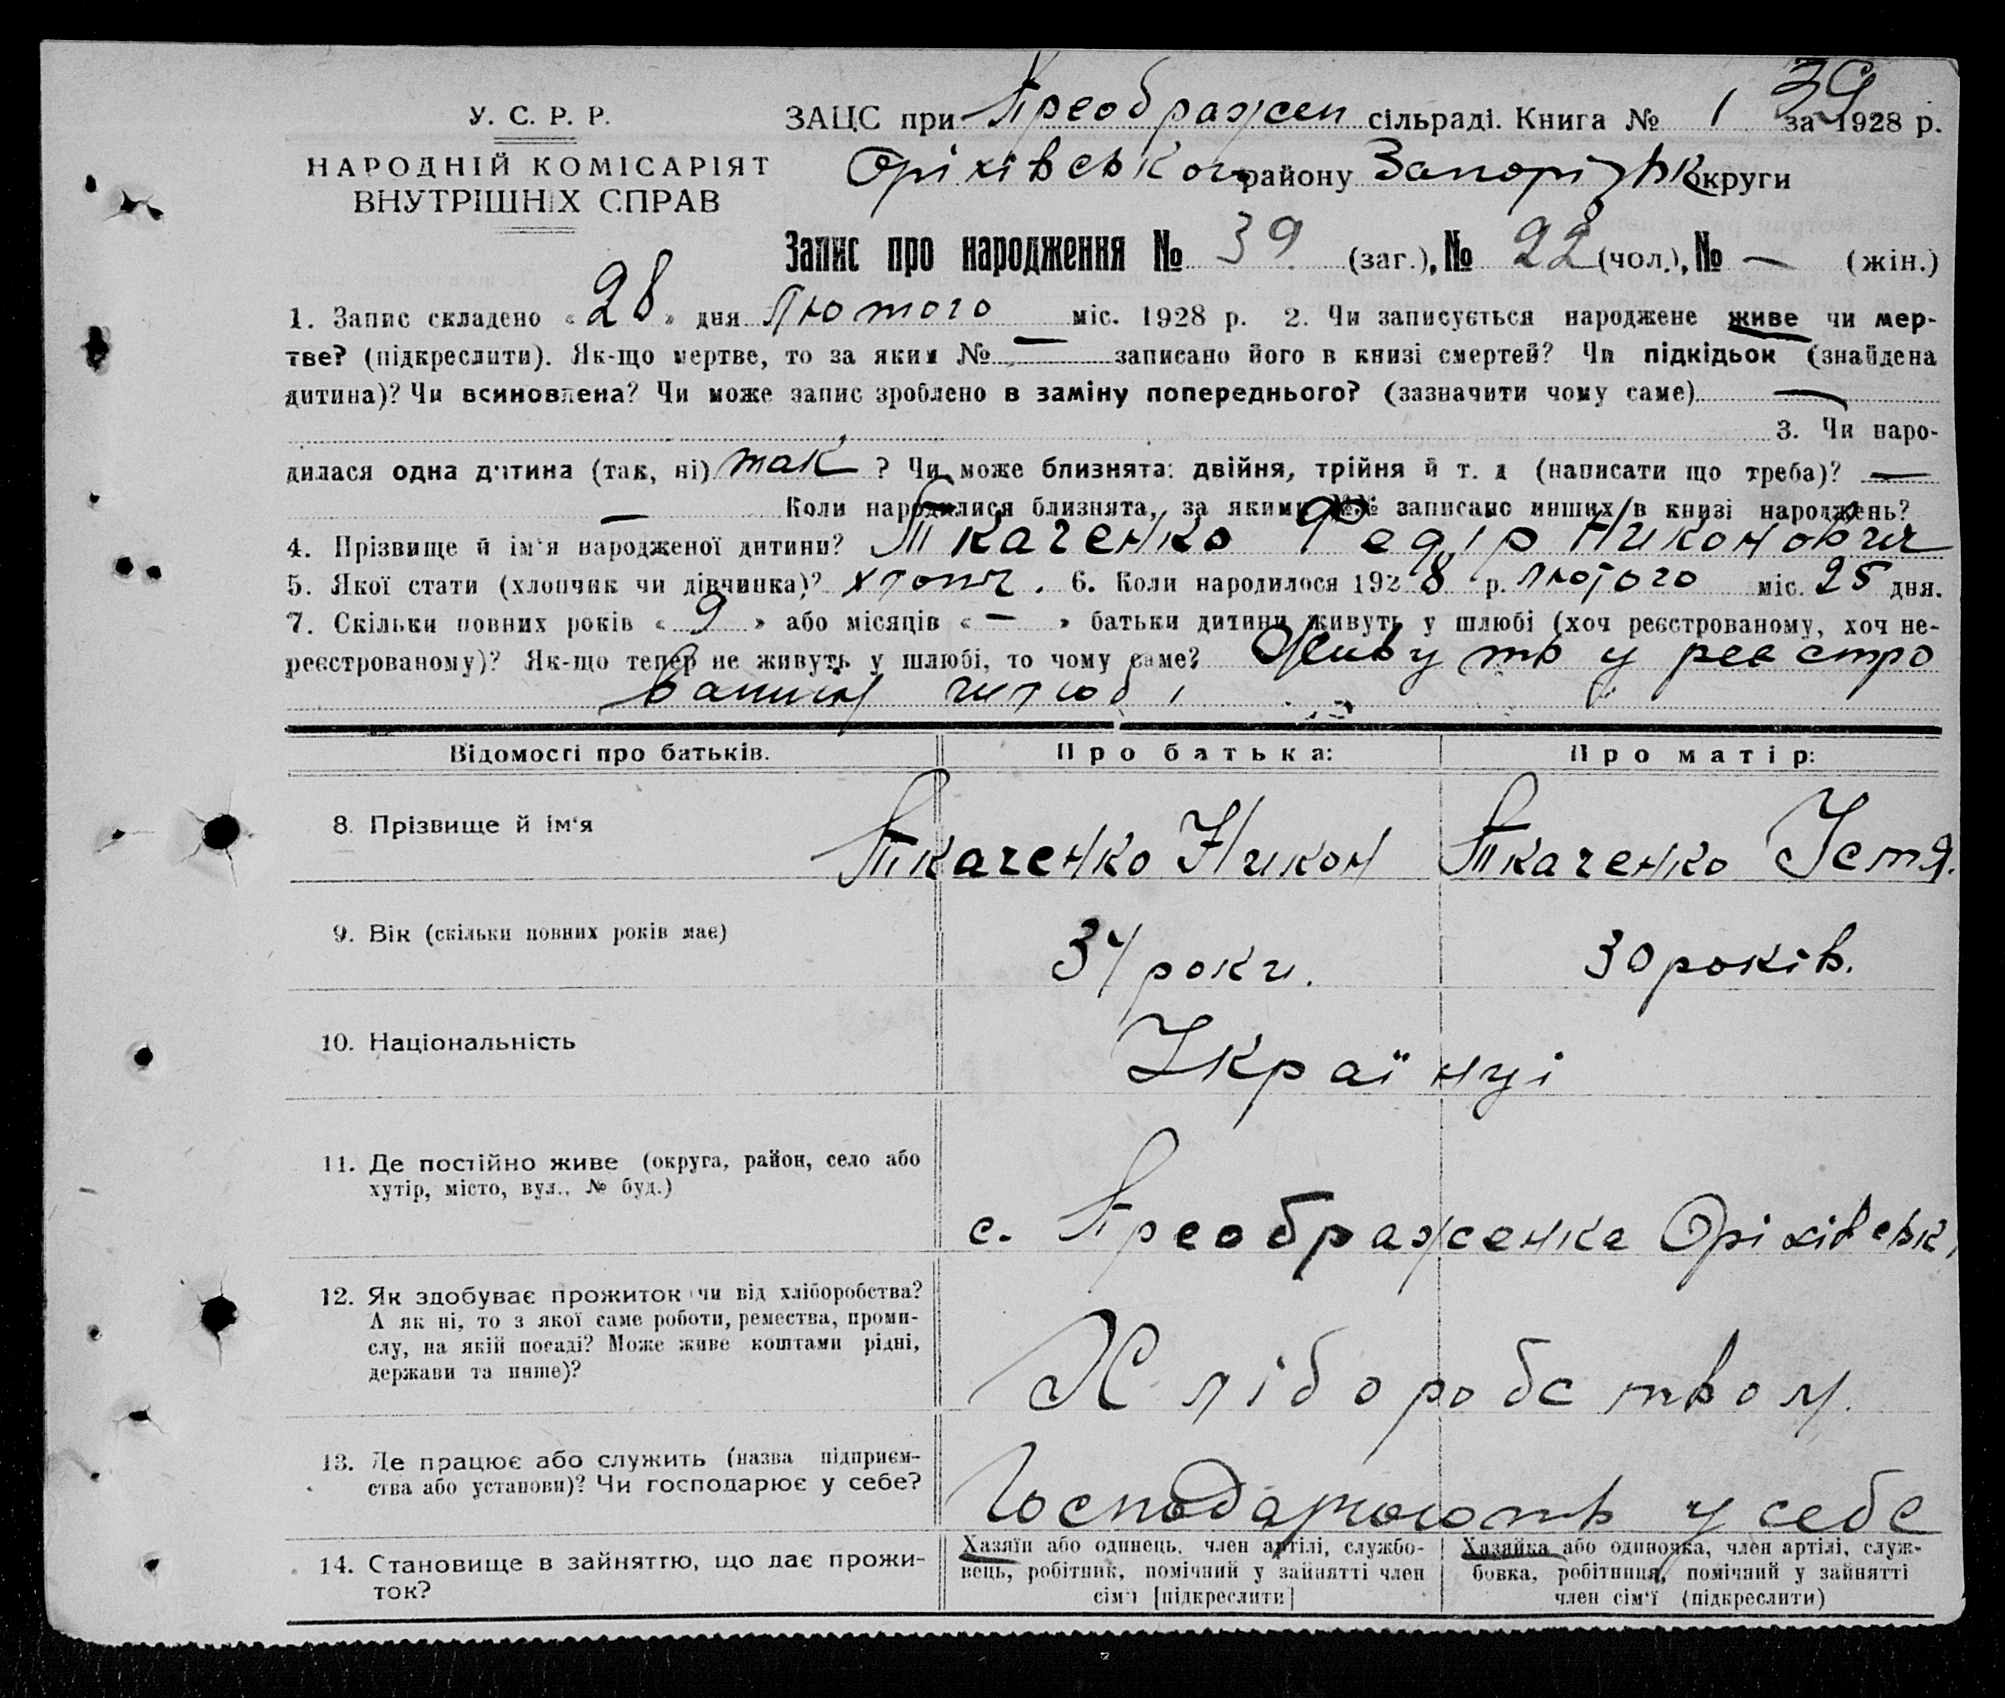 39
У. С. Р. Р.
ЗАЦС при Преображен сільраді. Книга № 1 за 1928 р.
НАРОДНІЙ КОМІСАРІЯТ
ВНУТРІШНІХ СПРАВ
Оріхівського району Запорізьк округи
Запис про народження № 39 (заг.), № 22 (чол.), № — (жін.)
1. Запис складено « 28 » дня Лютого міс. 1928 р. 2. Чи записується народжене живе чи мер-
тве? (підкреслити). Як-що мертве, то за яким № — записано його в книзі смертей? Чи підкідьок (знайдена
дитина)? Чи всиновлена? Чи може запис зроблено в заміну попереднього? (зазначити чому саме) —
3. Чи наро-
дилася одна дитина (так, ні) так ? Чи може близнята: двійня, трійня й т. д (написати що треба)? —
— Коли народилися близнята, за якими №№ записано инших в книзі народжень?
4. Прізвище й ім'я народженої дитини? Ткаченко Федір Никонович
5. Якої стати (хлопчик чи дівчинка)? хлопч. 6. Коли народилося 1928 р. лютого міс. 25 дня.
7. Скільки повних років « 9 » або місяців « — » батьки дитини живуть у шлюбі (хоч реєстрованому, хоч не-
реєстрованому)? Як-що тепер не живуть у шлюбі, то чому саме? Живуть у реєстро
ваним шлюбі
Відомості про батьків.
Про батька:
Про матір:
8. Прізвище й ім'я
Ткаченко Никон
Ткаченко Устя.
9. Вік (скільки повних років має)
34 роки.
30 років.
10. Національність
Українці
11. Де постійно живе (округа, район, село або
хутір, місто, вул., № буд.)
с. Преображенка Оріхівськ
12. Як здобуває прожиток чи від хліборобства?
А як ні, то з якої саме роботи, ремества, проми-
слу, на якій посаді? Може живе коштами рідні,
держави та инше)?
Хліборобством.
13. Де працює або служить (назва підприєм-
ства або установи)? Чи господарює у себе?
Господарюють у себе
14. Становище в зайняттю, що дає прожи-
ток?
Хазяїн або одинець, член артілі, службо-
вець, робітник, помічний у зайнятті член
сім'ї [підкреслити]
Хазяйка або одиночка, член артілі, служ-
бовка, робітниця, помічний у зайнятті
член сім'ї (підкреслити)